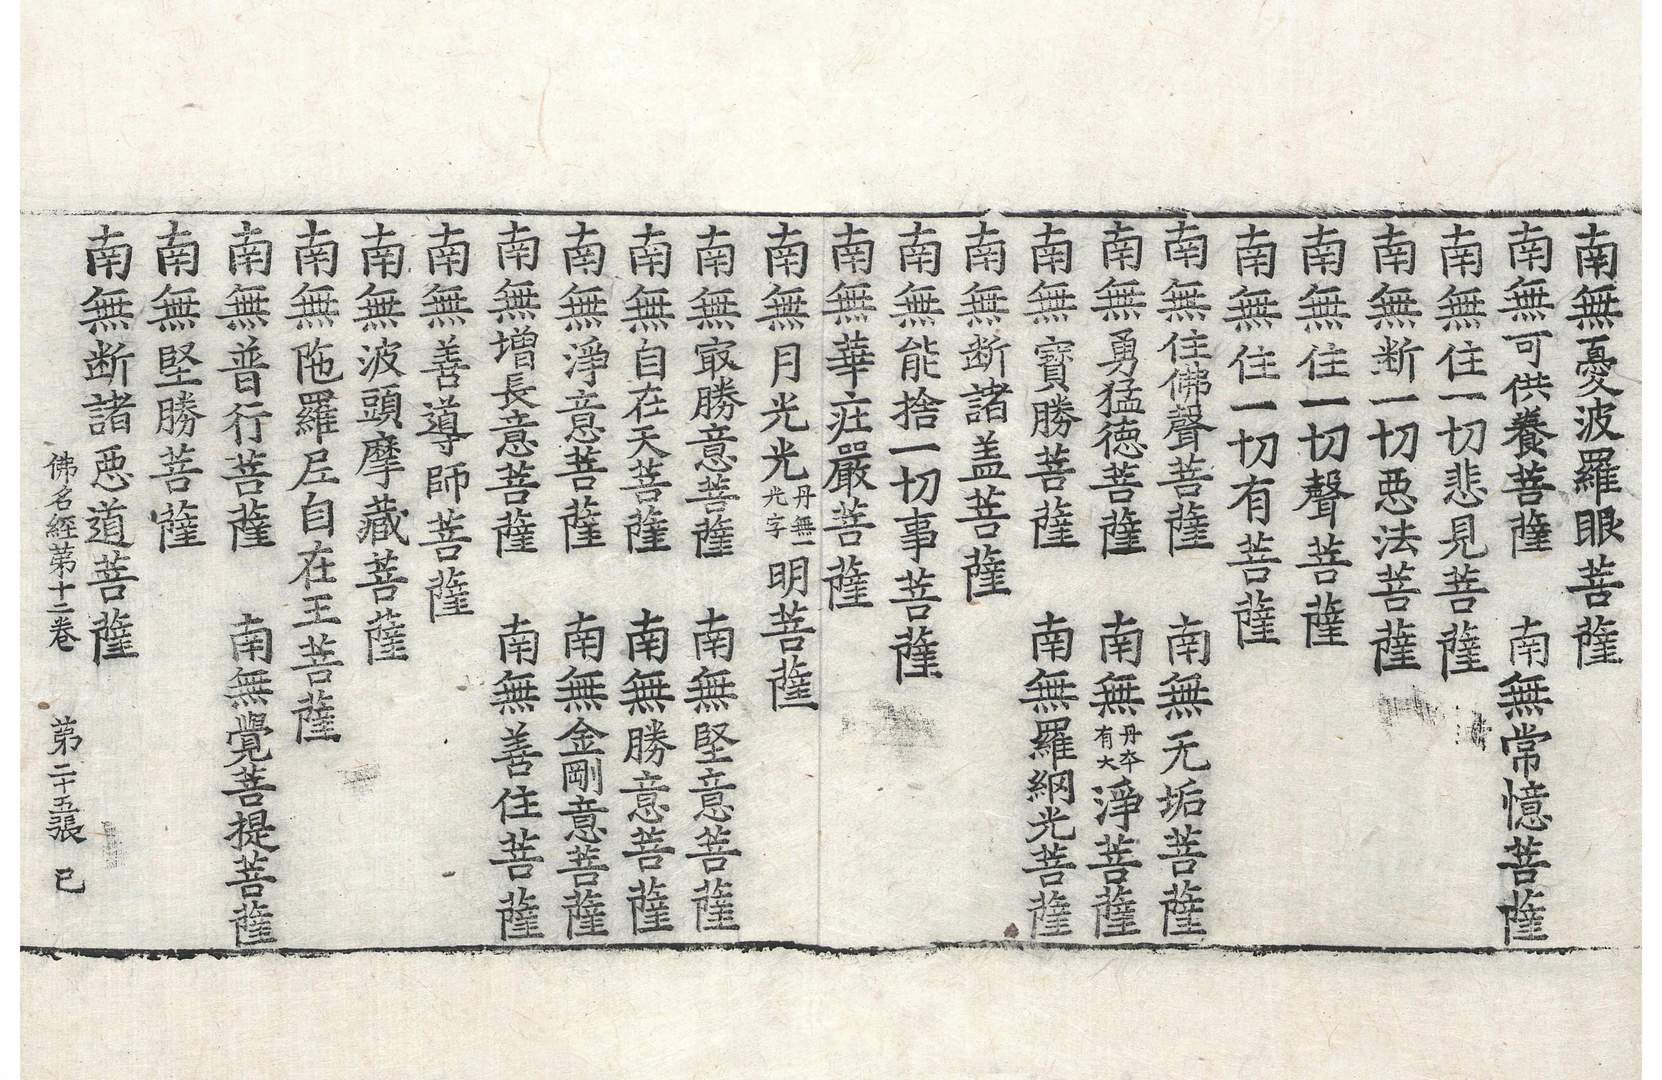 南無憂波羅眼菩薩
南無可供養菩薩　南無常憶菩薩
南無住一切悲見菩薩
南無断一切惡法菩薩
南無住一切聲菩薩
南無住一切有菩薩
南無住佛聲菩薩　南無无垢菩薩
南無勇猛德菩薩　南無丹夲有大淨菩薩
南無寶勝菩薩　南無羅網光菩薩
南無断諸盖菩薩
南無能捨一切事菩薩
南無華莊嚴菩薩
南無月光光丹無光字明菩薩
南無㝡勝意菩薩　南無堅意菩薩
南無自在天菩薩　南無勝意菩薩
南無淨意菩薩　南無金剛意菩薩
南無增長意菩薩　南無善住菩薩
南無善導師菩薩
南無波頭摩藏菩薩
南無陁羅尼自在王菩薩
南無普行菩薩　南無覺菩提菩薩
南無堅勝菩薩
南無断諸惡道菩薩
佛名經第十二卷　第二十五張　已